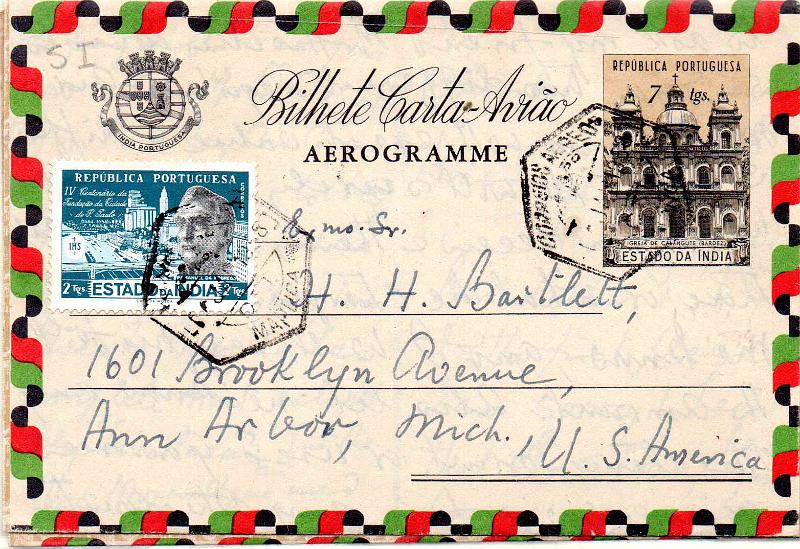 SI
ÍNDIA PORTUGUESA
Bilhete Carta-Avião
AEROGRAMME
REPÚBLICA PORTUGUESA
7 tgs.
IGREJA DE CALANGUTE (BARDEZ)
ESTADO DA ÍNDIA
REPÚBLICA PORTUGUESA
IV Centenário da
Fundação da Cidade
de S. Paulo
IHS
2 Tgs ESTADO DA ÍNDIA 2 Tgs
MAPUÇÁ
Exmo. Sr.
H. H. Bartlett,
1601 Brooklyn Avenue,
Ann Arbor, Mich.,
U. S. America